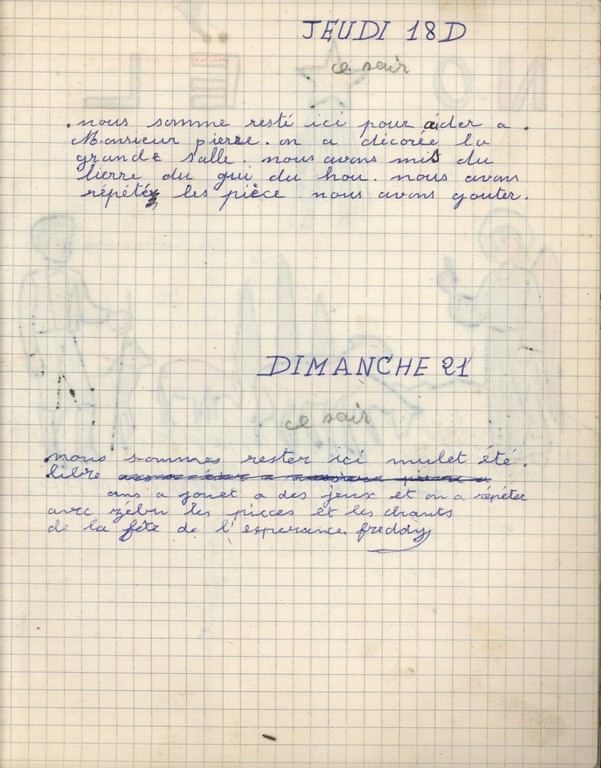 JEUDI 18D
ce soir
. nous somme resté ici pour aider a .
Monsieur pierre . on a décorée la
grande salle . nous avons mis du
lierre du gui du hou . nous avons
répétéz les pièce nous avons gouter .
DIMANCHE 21
ce soir
nous sommes rester ici mulet été .
libre
ons a jouet a des jeux et on a répéter
avec zébu les pieces et les chants
de la fête de l'esperance freddy
NOEL